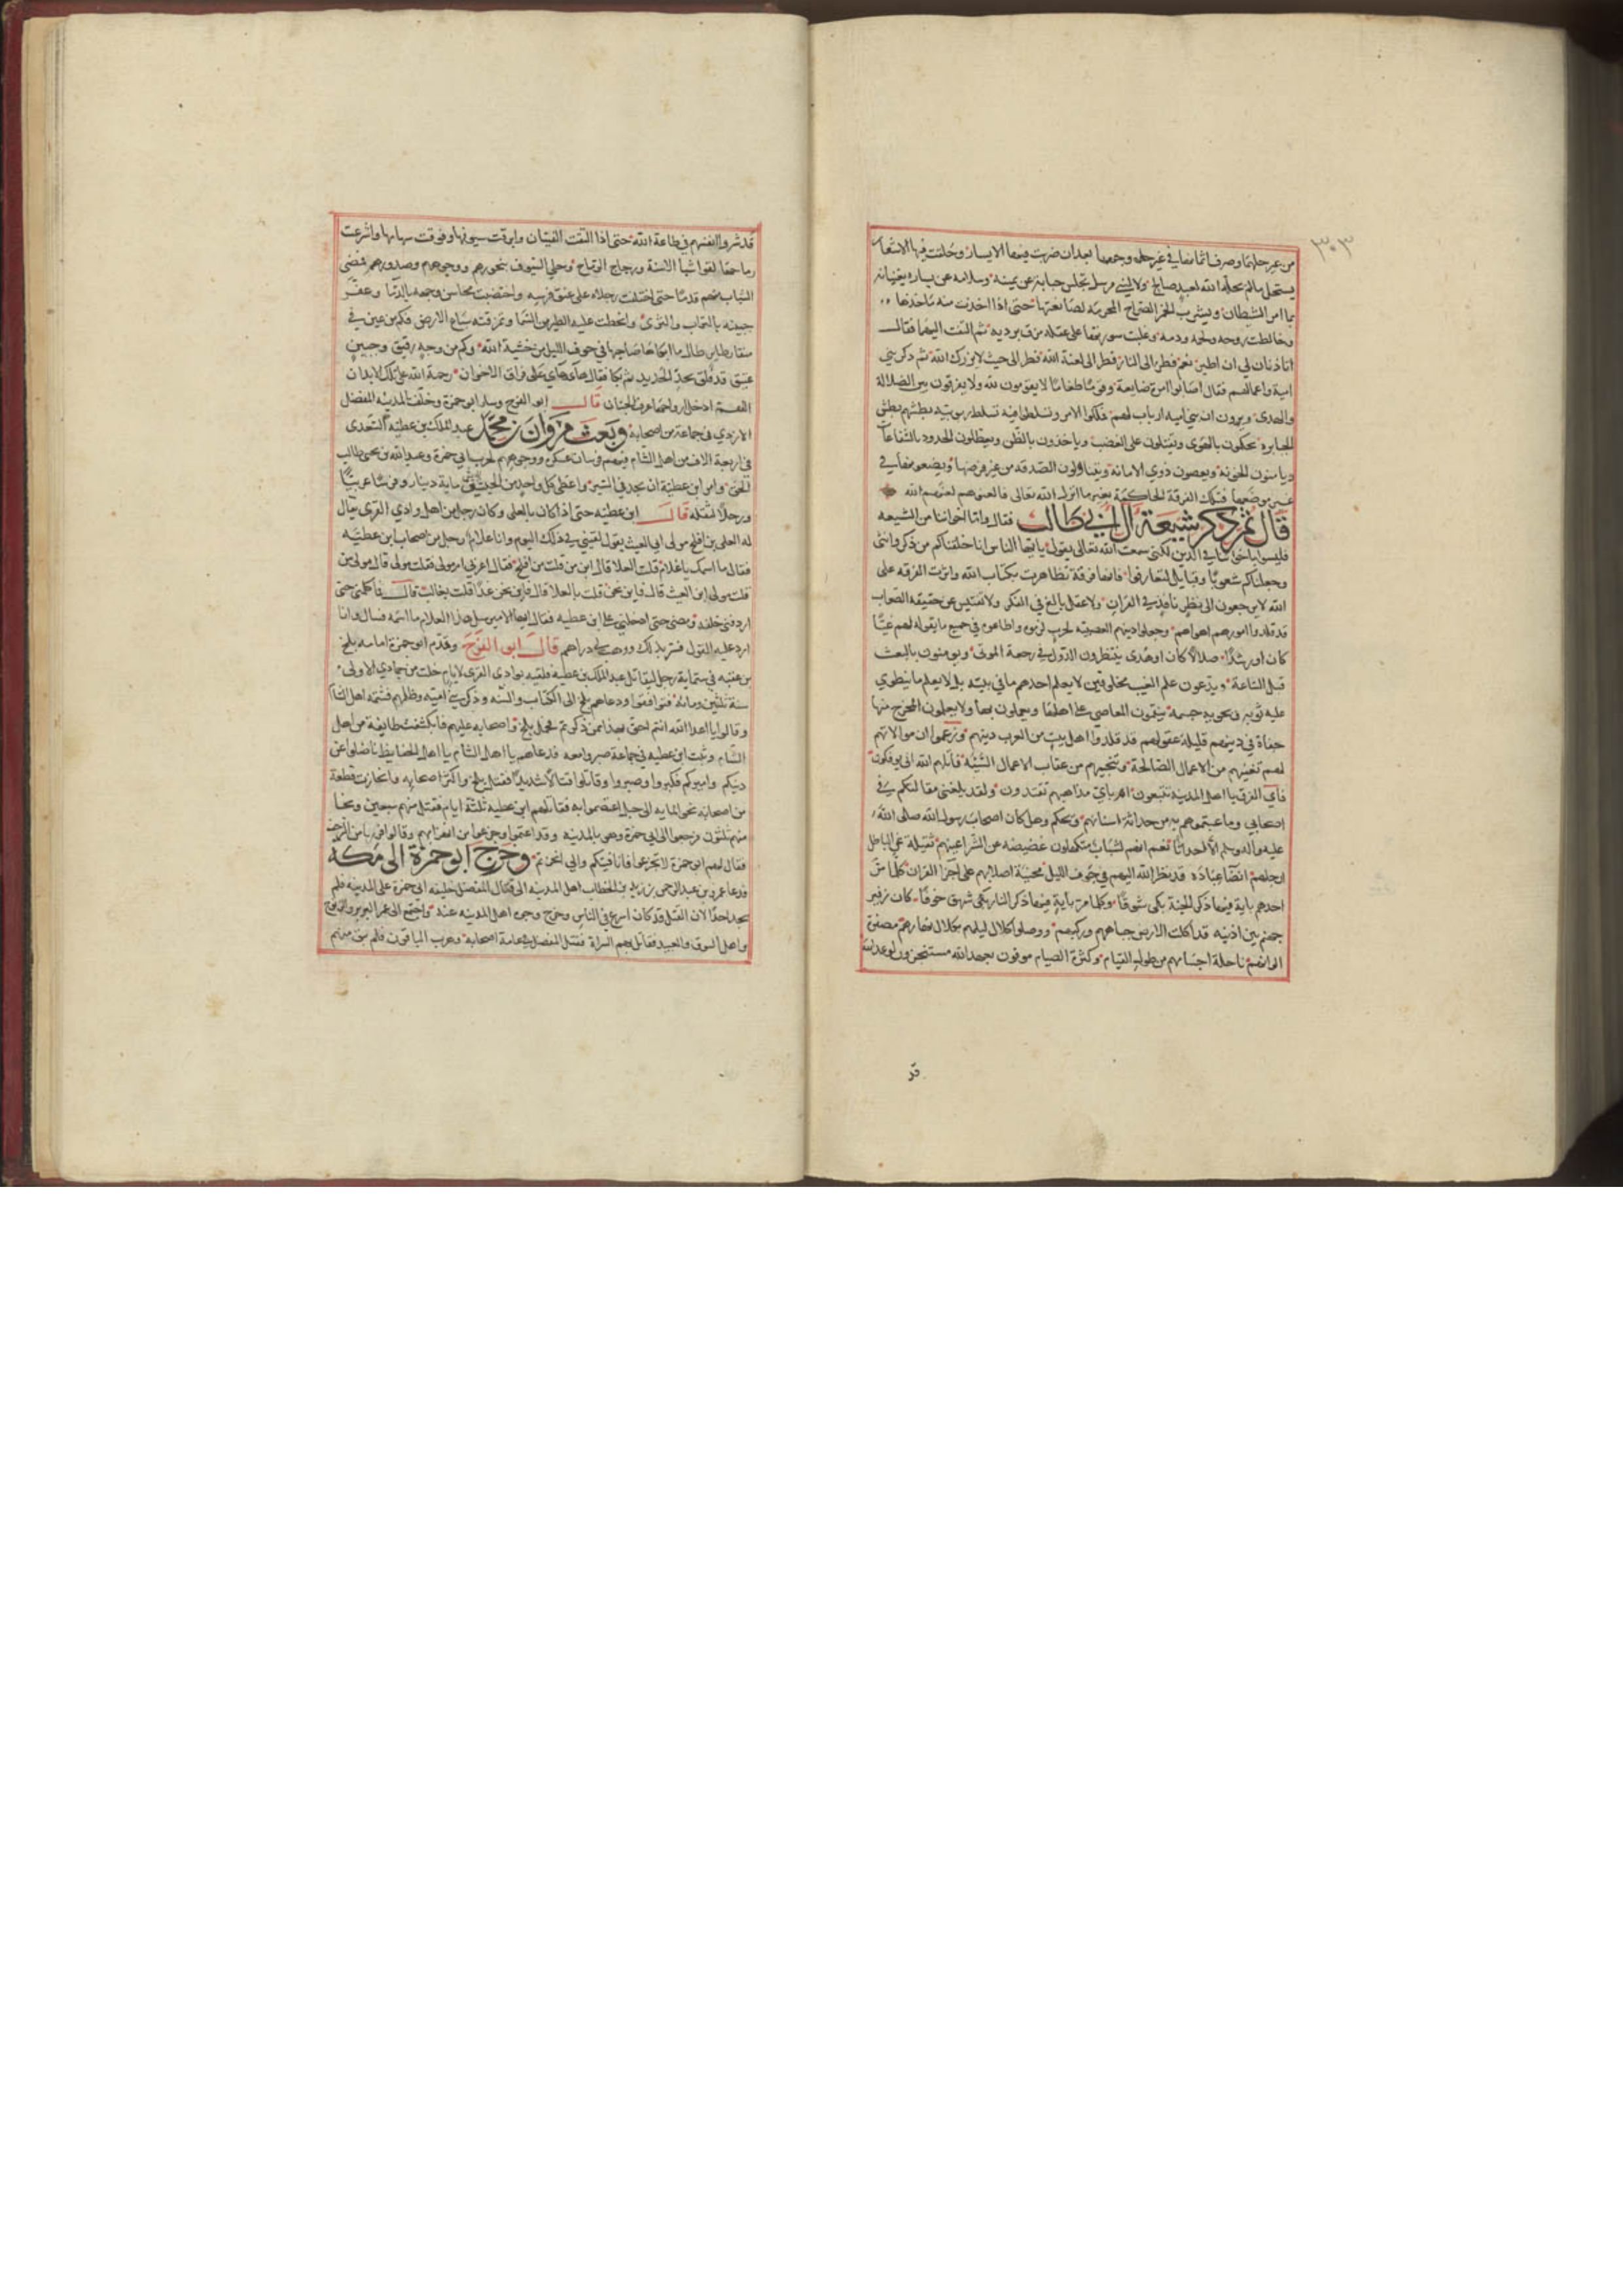 ٣٠٣
من غير حلها وصرف اثمانها في غير حله وجمعها بعد ان ضربت فيها الابشار وحلقت فيها الاشعار
يستحل ما لم يحله الله لعبد صالح ولا لنبي مرسل تجلس حبابة عن يمينه وسلامه عن يساره يغنيانه
بمزامر الشيطان ويشرب الخمر الصراح المحرمة نصا بعينها حتى اذا اخذت منه ماخذها
وخالطت روحه ولحمه ودمه وغلبت سورتها على عقله مزق برديه ثم التفت اليهما فقال
اتاذنان لي ان اطير نعم فطر الى النار فطر الى لعنة الله فطر الى حيث لا يردك الله ثم ذكر بني
امية واعمالهم فقال اصابوا امرة ضايعة وقوما طغاما لا يقومون لله ولا يفرقون بين الضلالة
والهدى ويرون ان بني امية ارباب لهم فملكوا الامر وتسلطوا فيه تسلط ربوبية بطشهم بطش
الجبابرة يحكمون بالهوى ويقتلون على الغضب وياخذون بالظن ويعطلون الحدود بالشفاعات
ويامنون الخونة ويعصون ذوي الامانة ويتناولون الصدقة من غير فرضها ويضعونها في
غير موضعها فتلك الفرقة الحاكمة بغير ما انزل الله تعالى فالعنوهم لعنهم الله
قال ثم ذكر شيعة ال ابي طالب فقال واما اخواننا من الشيعه
فليسوا باخواننا في الدين لكني سمعت الله تعالى يقول يا ايها الناس انا خلقناكم من ذكر وانثى
وجعلناكم شعوبا وقبايل لتعارفوا فانها فرقة تظاهرت بكتاب الله واثرت الفرقه على
الله لا يرجعون الى نظر نافذ في القران ولا عقل بالغ في الفكر ولا تفتيش عن حقيقة الصواب
قد قلدوا امورهم اهواهم وجعلوا دينهم العصبية لحزب لزموه واطاعوه في جميع ما يقوله لهم غيا
كان او رشدا ضلالا كان او هدى ينتظرون الدول في رجعة الموتى ويومنون بالبعث
قبل الساعة ويدعون علم الغيب لمخلوقين لا يعلم احدهم ما في بيته بل لا يعلم ما ينطوي
عليه ثوبه ويحويه جسمه ينقمون المعاصي على اهلها ويعملون بها ولا يعلمون المخرج منها
جفاة في دينهم قليلة عقولهم قد قلدوا اهل بيت من العرب دينهم وزعموا ان موالاتهم
لهم تغنيهم من الاعمال الصالحة وتنجيهم من عقاب الاعمال السيئة قاتلهم الله انى يوفكون
فاي الفرق يا اهل المدينة تتبعون ام باي مذاهبهم تقتدون ولقد بلغني مقالتكم في
اصحابي وما عبتموهم به من حداثة اسنانهم ويحكم وهل كان اصحاب رسول الله صلى الله
عليه وآله وسلم الا احداثا نعم انهم لشباب متكهلون غضيضه عن الشر اعينهم ثقيلة عن الباطل
ارجلهم انضآ عبادة قد نظر الله اليهم في جوف الليل محنية اصلابهم على اجزآ القران كلما مر
احدهم باية فيها ذكر الجنة بكى شوقا وكلما مر باية فيها ذكر النار بكى شهق خوفا كان زفير
جهنم بين اذنيه قد اكلت الارض جباههم وركبهم ووصلوا كلال ليلهم بكلال نهارهم مصفرة
الوانهم ناحلة اجسامهم من طول القيام وكثرة الصيام موفون بعهد الله مستنجزون لوعد الله
قد
قد شروا انفسهم في طاعة الله حتى اذا التقت الفيتان وابرقت سيوفها وفوقت سهامها واشرعت
رماحها لقوا شبا الاسنة وزجاج الرماح وحلي السيوف بنحورهم ووجوههم وصدورهم فمضى
الشباب منهم قدما حتى اختلفت رجلاه على عنق فرسه واختضبت محاسن وجهه بالدما وعفر
جبينه بالتراب والثرى وانحطت عليه الطير من السما ومزقته سباع الارض فكم من عين في
منقار طاير طال ما ابكاها صاحبها في جوف الليل من خشية الله وكم من وجه رقيق وجبين
عتيق قد فلق بحد الحديد ثم بكا فقال هاي هاي على فراق الاخوان رحمة الله على تلك الابدان
اللهم ادخل ارواحها غرف الجنان قال ابو الفرج وسار ابو حمزة وخلف المدينه المفضل
الازدي في جماعة من اصحابه وبعث مروان بن محمد عبد الملك بن عطية السعدى
في اربعة الاف من اهل الشام فيهم فرسان عسكره ووجوههم لحرب ابي حمزة وعبد الله بن يحيى طالب
الحق وامر ابن عطية ان يجد في السير واعطى كل واحد من الجيش ماية دينار وفرسا عربيا
ورحلا لثقله قال ابن عطيه حتى اذا كان بالعلى وكان رجل من اهل وادي القرى يقال
له العلى بن افلح مولى ابي الغيث يقول لقيني في ذلك اليوم وانا غلام رجل من اصحاب ابن عطيه
فقال ما اسمك يا غلام قلت العلا قال ابن من قلت من افلح فقال اعربي ام مولى فقلت مولى قال مولى من
قلت مولى ابن الغيث قال فاين نحن قلت بالعلا قال فاين نحن غدا قلت بغالب قال فما كلمني حتى
اردفني خلفه ومضى حتى ادخلني على ابن عطيه فقال ايها الامير سل هذا الغلام ما اسمه فسال وانا
ارد عليه القول فسر بذلك ووهب لي دراهم قال ابو الفرج وقدم ابو حمزة امامه بلج
بن عقبه في ستماية رجل ليقاتل عبد الملك بن عطية فلقيه بوادى القرى لايام خلت من جمادى الاولى
سنة ثلثين وماية فتواقفوا ودعاهم بلج الى الكتاب والسنه وذكر بني اميه وظلمهم فشتمه اهل الشام
وقالوا يا اعدا الله انتم احق بهذا ممن ذكرتم فحمل بلج واصحابه عليهم فانكشفت طايفة من اهل
الشام وثبت ابن عطيه في جماعة صبروا معه فدعاهم يا اهل الشام يا اهل الحفايظ ناضلوا عن
دينكم واميركم فكبروا وصبروا وقاتلوا قتالا شديدا فقتل بلج واكثر اصحابه وانحازت قطعة
من اصحابه نحو الماية الى جبل اعتصموا به فقاتلهم ابن عطيه ثلثة ايام فقتل منهم سبعين ونجا
منهم ثلثون فرجعوا الى ابي حمزة وهو بالمدينه وقد اغتموا وجزعوا من انهزامهم وقالوا فررنا من الزحف
فقال لهم ابو حمزة لا تجزعوا فانا فيئكم والي انحزتم وخرج ابو حمزة الى مكه
فدعا عمر بن عبد الرحمن بن زيد بن الخطاب اهل المدينه الى قتال المفضل خليفه ابي حمزة على المدينه فلم
يجد احدا لان القتل قد كان اسرع في الناس وخرج وجوه اهل المدينه عنه واجتمع الى عمر البربر والزنوج
واهل السوق والعبيد فقاتل بهم الشراة فقتل المفضل وعامة اصحابه وهرب الباقون فلم يبق منهم